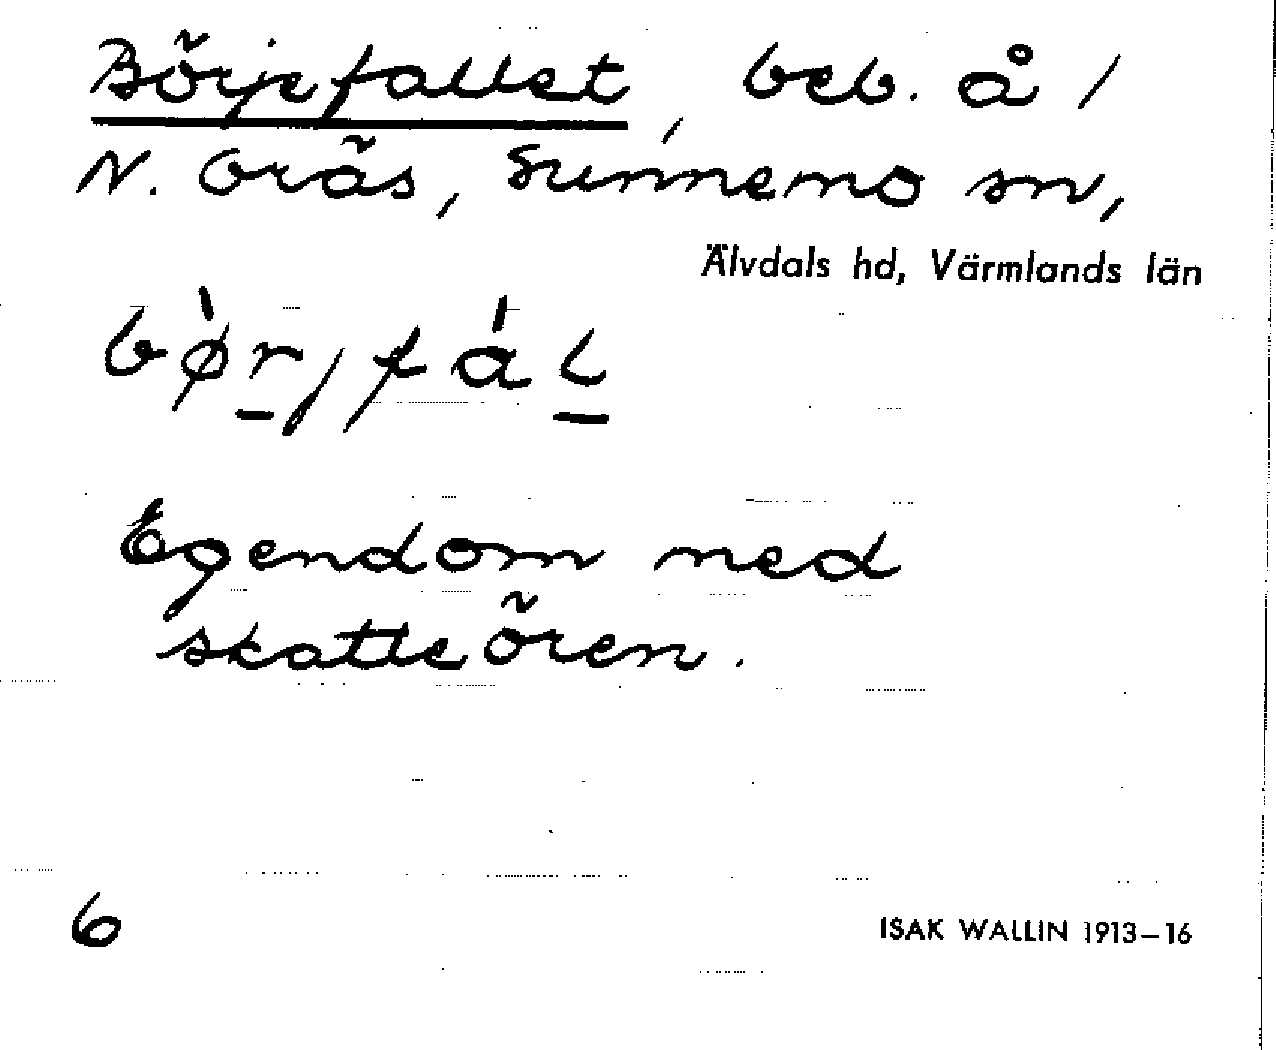 Börjefallet, beb. å /
N. Gräs, Sunnemo sn,
Älvdals hd, Värmlands län
Egendom med
skatteören.
6
ISAK WALLIN 1913–16